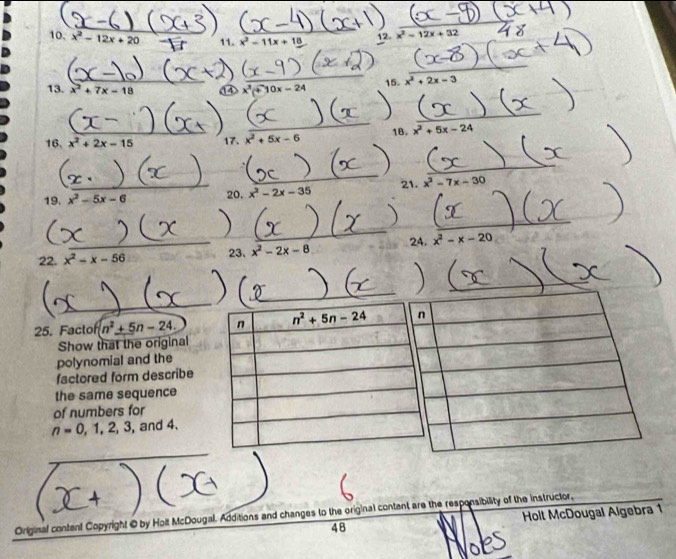 (x-6) (x+3) (x-4) (x+1) (x-8) (x+4)
10. x² - 12x + 20 11. x² - 11x + 18 12. x² - 12x + 32 48
(x-10) (x+2) (x-9) (x+2) (x-8) (x+4)
13. x² + 7x - 18 14. x² + 10x - 24 15. x² + 2x - 3
(x- ) (x+ ) (x ) (x ) (x ) (x )
16. x² + 2x - 15 17. x² + 5x - 6 18. x² + 5x - 24
(x. ) (x ) (x ) (x ) (x ) (x )
19. x² - 5x - 6 20. x² - 2x - 35 21. x² - 7x - 30
(x ) (x ) (x ) (x ) (x ) (x )
22. x² - x - 56 23. x² - 2x - 8 24. x² - x - 20
(x ) (x ) (x ) (x ) (x ) (x )
25. Factor n² + 5n - 24.
Show that the original
polynomial and the
factored form describe
the same sequence
of numbers for
n = 0, 1, 2, 3, and 4.
n n² + 5n - 24 n
(x+ ) (x+ )
6
Original content Copyright © by Holt McDougal. Additions and changes to the original content are the responsibility of the instructor.
48 Holt McDougal Algebra 1
Notes